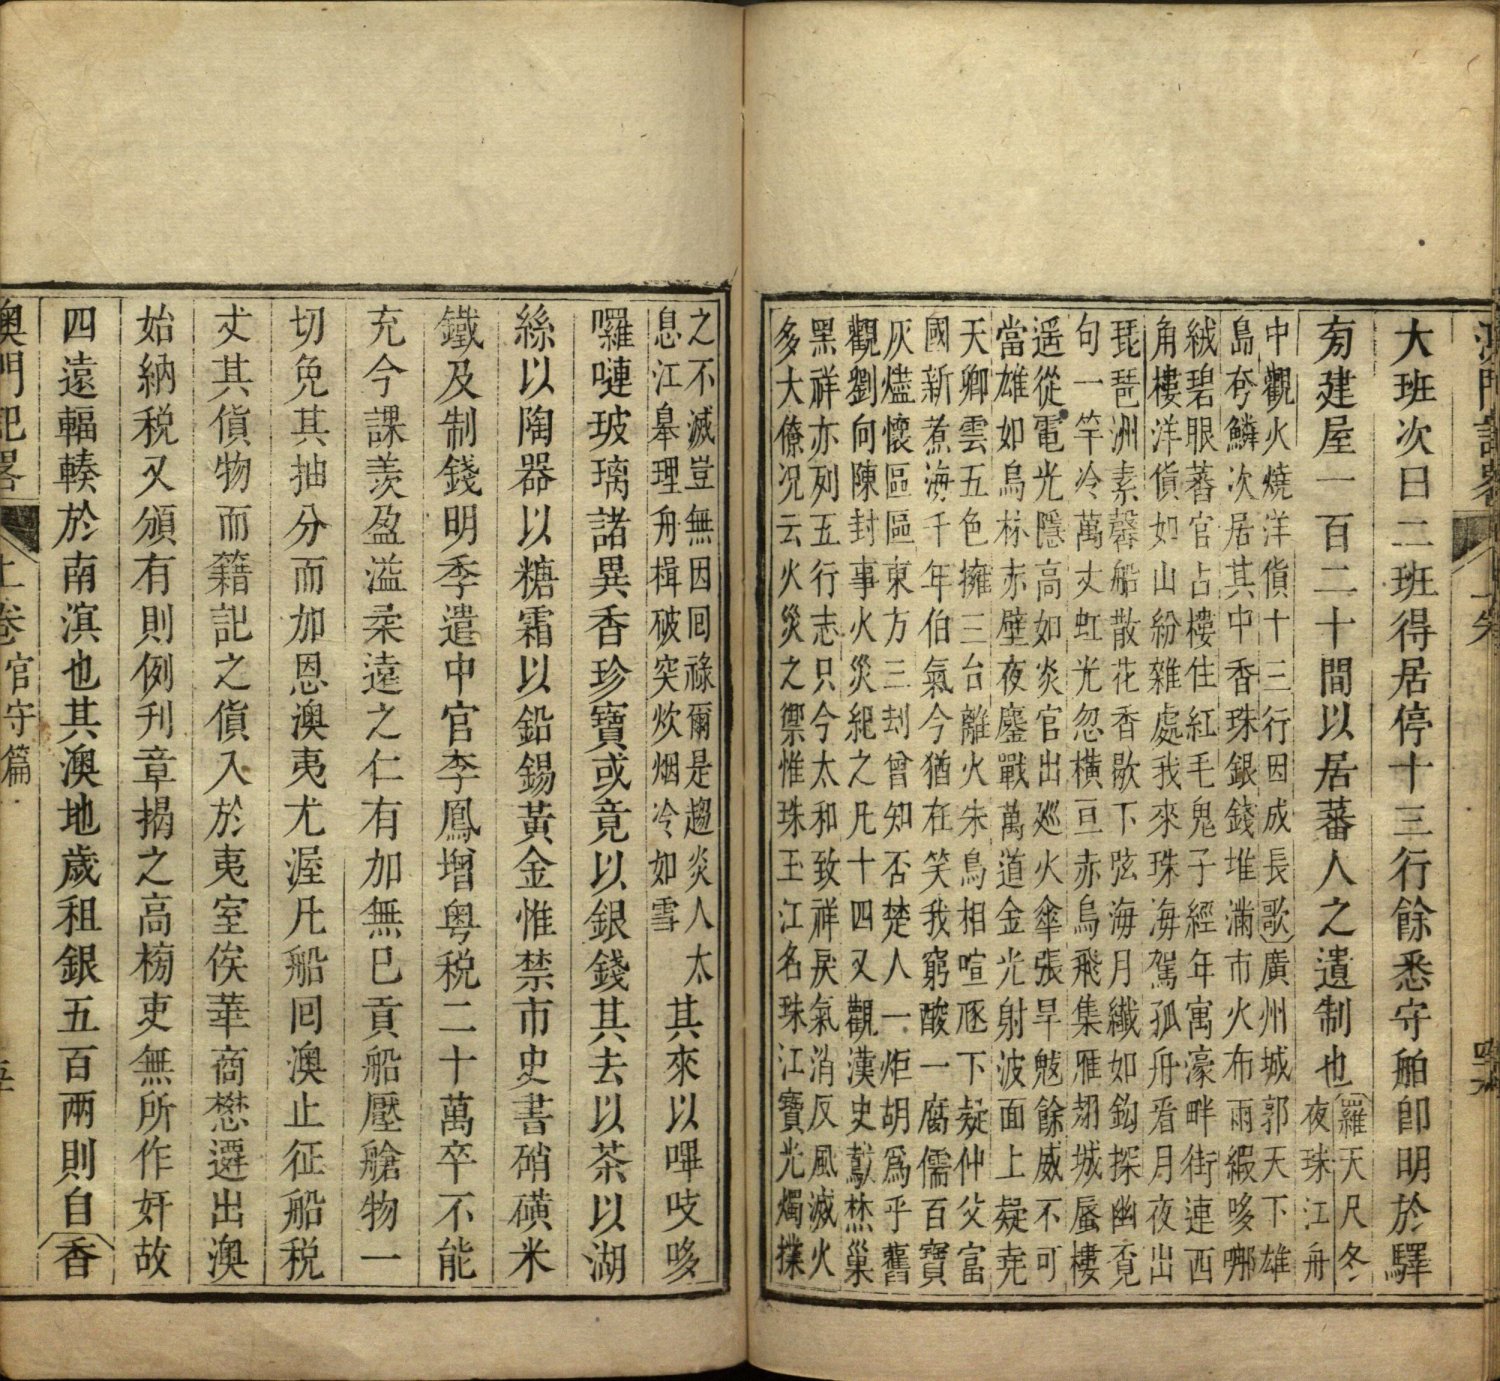 大班次日二班得居停十三行餘悉守舶卽明於驛
旁建屋一百二十間以居蕃人之遺制也
羅天尺冬
夜珠江舟
中觀火燒洋貨十三行因成長歌廣州城郭天下雄
島夸鱗次居其中香珠銀錢堆滿市火布雨緞哆哪
絨碧眼蕃官占樓住紅毛鬼子經年寓濠畔街連西
角樓洋貨如山紛雜處我來珠海駕孤舟看月夜出
琵琶洲素馨船散花香歇下弦海月纖如鈎探幽覔
句一竿冷萬丈虹光忽橫亘赤烏飛集雁翅城蜃樓
遥從電光隱高如炎官出廵火傘張旱魃餘威不可
當雄如烏林赤壁夜鏖戰萬道金光射波面上疑尭
天卿雲五色擁三台離火朱鳥相喧豗下疑仲父富
國新煮海千年伯氣今猶在笑我窮酸一腐儒百寶
灰燼懷區區東方三刦曾知否楚人一炬胡爲乎舊
觀劉向陳封事火災紀之凡十四又觀漢史鳶焚巢
黑祥亦列五行志只今太和致祥戾氣消反風滅火
多大僚况云火災之禦惟珠玉江名珠江寶光燭撲
之不滅豈無因回祿爾是趨炎人太
息江臯理舟楫破突炊烟冷如雪
其來以嗶吱哆
囉嗹玻璃諸異香珍寶或竟以銀錢其去以茶以湖
絲以陶器以糖霜以鉛錫黃金惟禁市史書硝磺米
鐵及制錢明季遣中官李鳳增粤税二十萬卒不能
充今課羨盈溢柔遠之仁有加無已貢船壓艙物一
切免其抽分而加恩澳夷尤渥凡船回澳止征船税
丈其貨物而籍記之貨入於夷室俟華商懋遷出澳
始納税又頒有則例刋章揭之高榜吏無所作奸故
四遠輻輳於南溟也其澳地歲租銀五百兩則自香
澳門記畧 上卷 官守篇